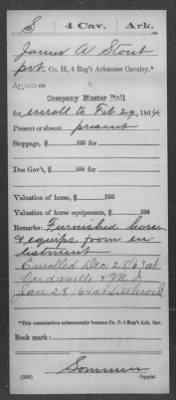 S | 4 Cav. | Ark.
James A Stout
Pvt, Co. H, 4 Reg't Arkansas Cavalry.*
Appears on
Company Muster Roll
for enroll to Feb 29, 1864.
Present or absent present
Stoppage, $ 100 for
Due Gov't, $ 100 for
Valuation of horse, $ 100
Valuation of horse equipments, $ 100
Remarks: Furnished horse
& equips from en-
listment
Enrolled Dec 28/63 at
Dardanelle & M I
Jan 28/64 at Little rock
*This organization subsequently became Co. C, 4 Reg't Ark. Cav.
Book mark:
Copyist.